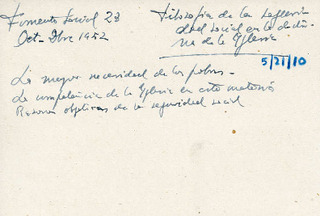 Fomento Social 28
Oct-Dbre 1952
Filosofia de la seguri
dad social en la doctri
na de la Iglesia
5/21/10
La mayor necesidad de los pobres -
La competencia de la Iglesia en esta materia
Razones objetivas de la seguridad social